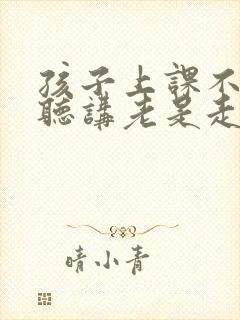 孩子上課不
聽講老是走
晴小青